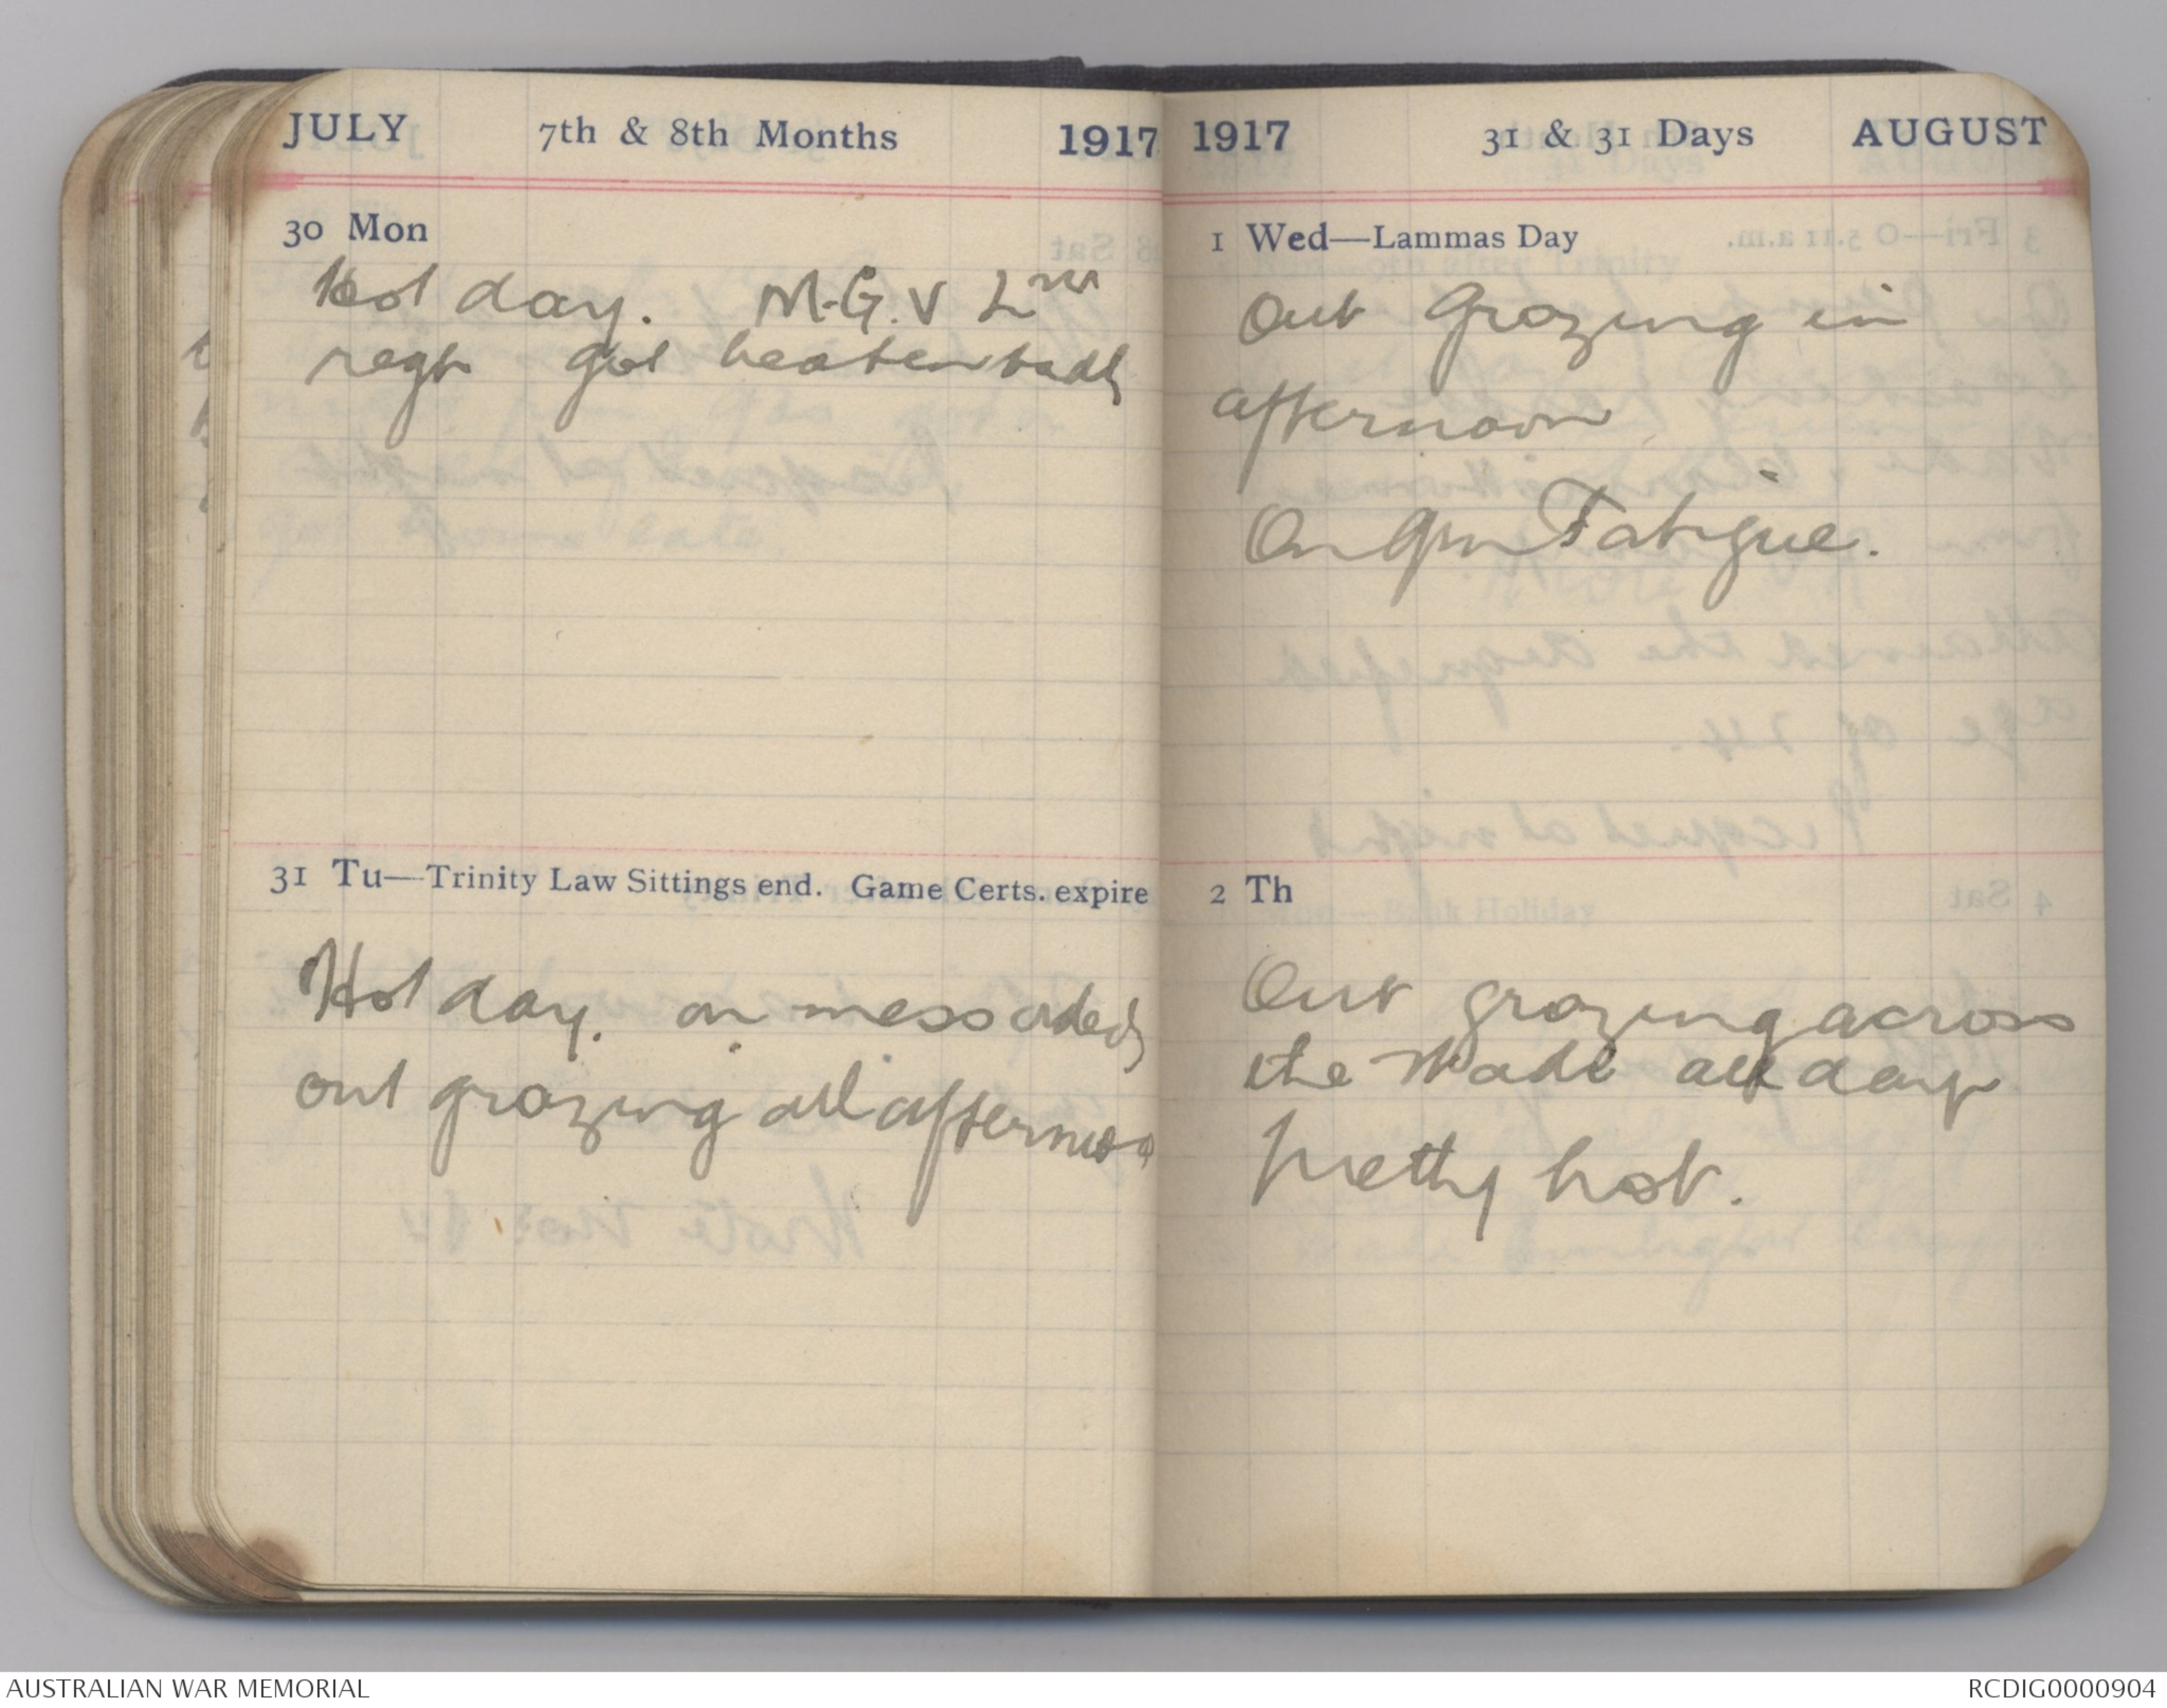 JULY 7th & 8th Months 1917
30 Mon
Hot day. M.G. v
regt got beaten badly
31 Tu—Trinity Law Sittings end. Game Certs. expire
Hot day. on mess
out grazing all afternoon
1917 31 & 31 Days AUGUST
1 Wed—Lammas Day
Out Grazing in
afternoon
On Gun Fatigue.
2 Th
Out grazing across
the Wadi all day
pretty hot.
AUSTRALIAN WAR MEMORIAL
RCDIG0000904